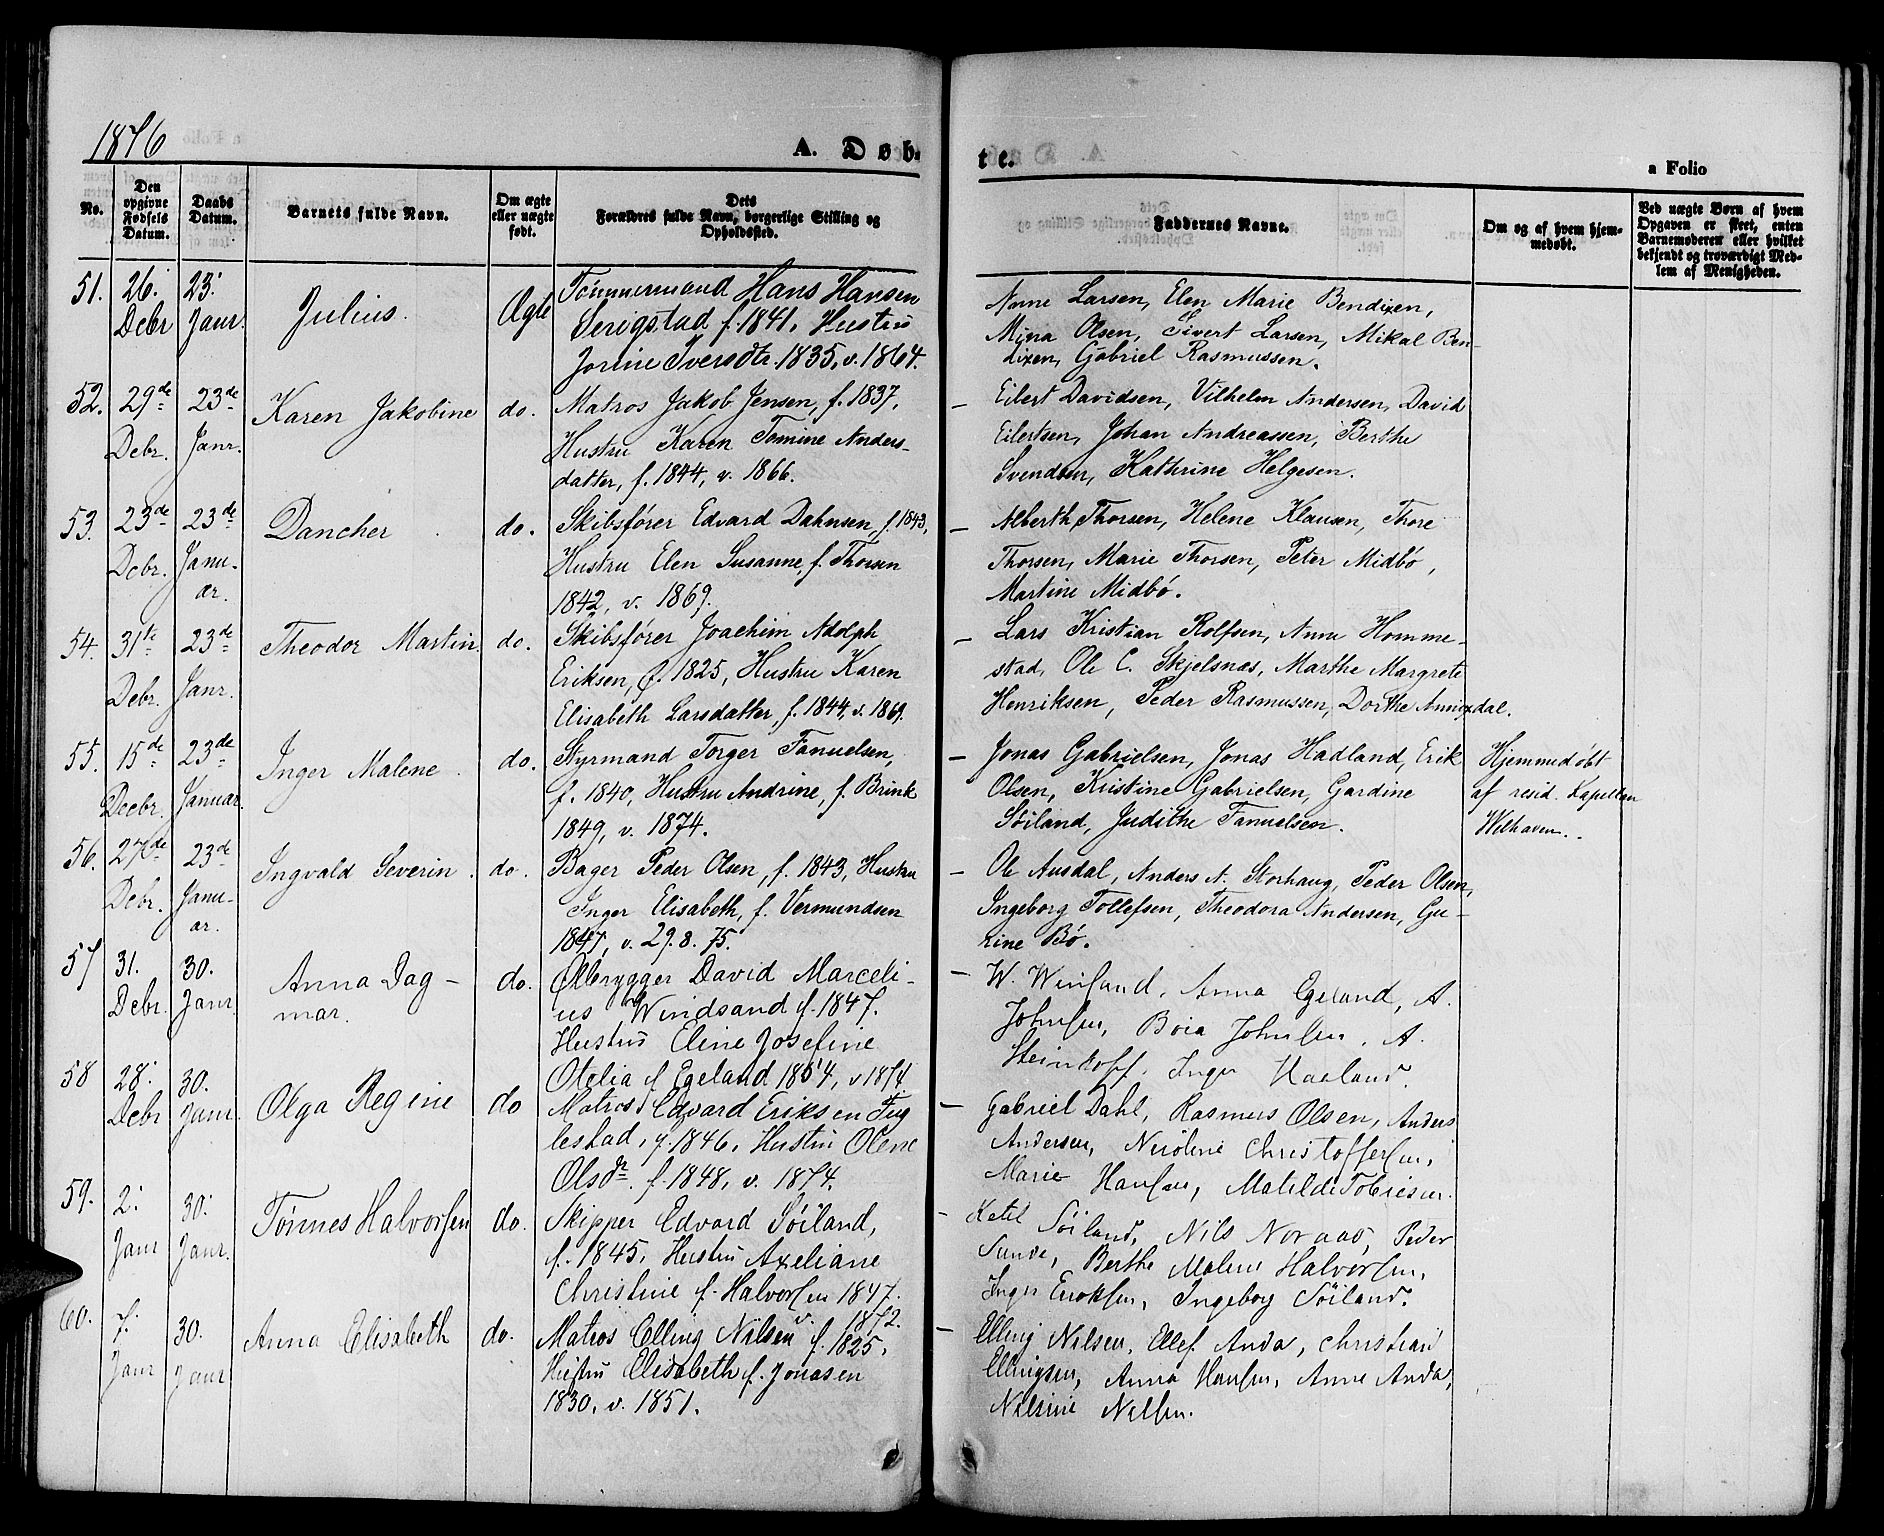 1876
A. Døb-
te.
a Folio
No.
Den opgivne Fødsels Datum.
Daabs Datum.
Barnets fulde Navn.
Om ægte eller uægte født.
Dets Forældres fulde Navn, borgerlige Stilling og Opholdssted.
Faddernes Navne.
Om og af hvem hjemmedøbt.
Ved uægte Børn af hvem Opgaven er skeet, enten Barnemoderen eller hvilket bekjendt og troværdigt Medlem af Menigheden.
51. 26. Debr 23. Janr. Julius. Ægte
Tømmermand Hans Hansen
Serigstad f. 1841. Hustru
Jorine Iversdtr. 1835, v. 1864.
Anne Larsen, Elen Marie Bendixen,
Mina Olsen, Sivert Larsen, Mikal Ben-
dixen, Gabriel Rasmussen.
52. 29de Debr. 23de Janr. Karen Jakobine do.
Matros Jakob Jensen, f. 1837,
Hustru Karen Tomine Anders-
datter, f. 1844, v. 1866.
– Eilert Davidsen, Vilhelm Andersen, David
Eilertsen, Johan Andreassen, Berthe
Svendsen, Kathrine Helgesen.
53. 23de Debr. 23de Janu-
ar.
Dancher do.
Skibsfører Edvard Dahnsen, f. 1843,
Hustru Elen Susanne, f. Thorsen
1842, v. 1869.
– Alberth Thorsen, Helene Klausen, Thore
Thorsen, Marie Thorsen, Peter Midbø,
Martine Midbø.
54. 31te Debr. 23de Janr. Theodor Martin. do.
Skibsfører Joachim Adolph
Eriksen, f. 1825, Hustru Karen
Elisabeth Larsdatter, f. 1844, v. 1869.
– Lars Kristian Rolfsen, Anne Homme-
stad, Ole C. Skjelsnæs, Marthe Margrete
Henriksen, Peder Rasmussen, Dorthe Anningdal.
55. 15de Decbr. 23de Januar. Inger Malene. do.
Styrmand Torger Fanuelsen,
f. 1840, Hustru Andrine, f. Brink
1849, v. 1874.
– Jonas Gabrielsen, Jonas Hadland, Erik
Olsen, Kristine Gabrielsen, Gardine
Søiland, Judithe Fanuelsen.
Hjemmedøbt
af resid. Kapellan
Welhaven.
56. 27de Debr. 23de Janu-
ar.
Ingvald Severin. do.
Bager Peder Olsen, f. 1843, Hustru
Inger Elisabeth, f. Vermundsen
1847, v. 29.8.75.
– Ole Ausdal, Anders A. Storhaug, Peder Olsen,
Ingeborg Tollefsen, Theodora Andersen, Gu-
rine Bø.
57 31. Debr. 30. Janr Anna Dag-
mar. do.
Ølbrygger David Marceli-
us Windsand f. 1847.
Hustru Eline Josefine
Otelia f Egeland 1854, v 1874
– W. Winsand, Anna Egeland, A.
Johnsen, Boia Johnsen, A.
Steinkoff, Inger Haaland.
58 28. Debr 30. Janr. Olga Regine do
Matros Edvard Eriksen Fug
lestad, f. 1846, Hustru Olene
Olsdr. f. 1848, v. 1874.
– Gabriel Dahl, Rasmus Olsen, Anders
Andersen, Nicoline Christoffersen,
Marie Hansen, Matilde Tobiesen.
59. 2. Janr 30. Janr. Tønnes Halvorsen do.
Skipper Edvard Søiland,
f. 1845, Hustru Axeliane
Christine f. Halvorsen 1847.
v. 1872.
– Ketil Søiland, Nils Noraas, Peder
Sunde, Berthe Malene Halvorsen,
Inger Eriksen, Ingeborg Søiland.
60. 7. Janr 30. Janr Anna Elisabeth do.
Matros Elling Nilsen f. 1825,
Hustru Elisabeth f. Jonasen
1830, v. 1851.
– Elling Nilsen, Ellef Anda, Christian
Ellingsen, Anna Hansen, Anne Anda,
Nilsine Nilsen.